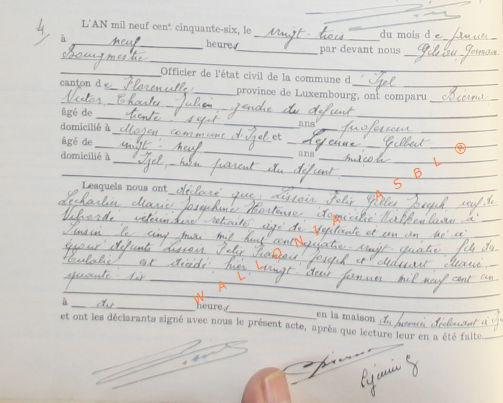 4/
L'AN mil neuf cent cinquante-six, le vingt-trois du mois de janvier
à neuf heures par devant nous
Bourgmestre
Officier de l'état civil de la commune d' Izel
canton de Florenville, province de Luxembourg, ont comparu Pierrard
Victor Charles Julien gendre du défunt
âgé de trente sept ans professeur
domicilié à Moyen commune d'Izel et Lejeune Gilbert
âgé de vingt-neuf ans
domicilié à Izel, non parent du défunt.
Lesquels nous ont déclaré que Lissoir Félix Joseph veuf de
Lecharlier Marie Joséphine Hortense domicilié
Vilvorde vétérinaire retraité âgé de septante et un an né à
le cinq mars mil huit cent quatre vingt quatre fils de
défunts Lissoir Félix François Joseph et Marie
Eulalie est décédé hier vingt deux janvier mil neuf cent cin
quante six
à dix heures en la maison du premier déclarant à
et ont les déclarants signé avec nous le présent acte, après que lecture leur en a été faite
WALLONIE ASBL ®